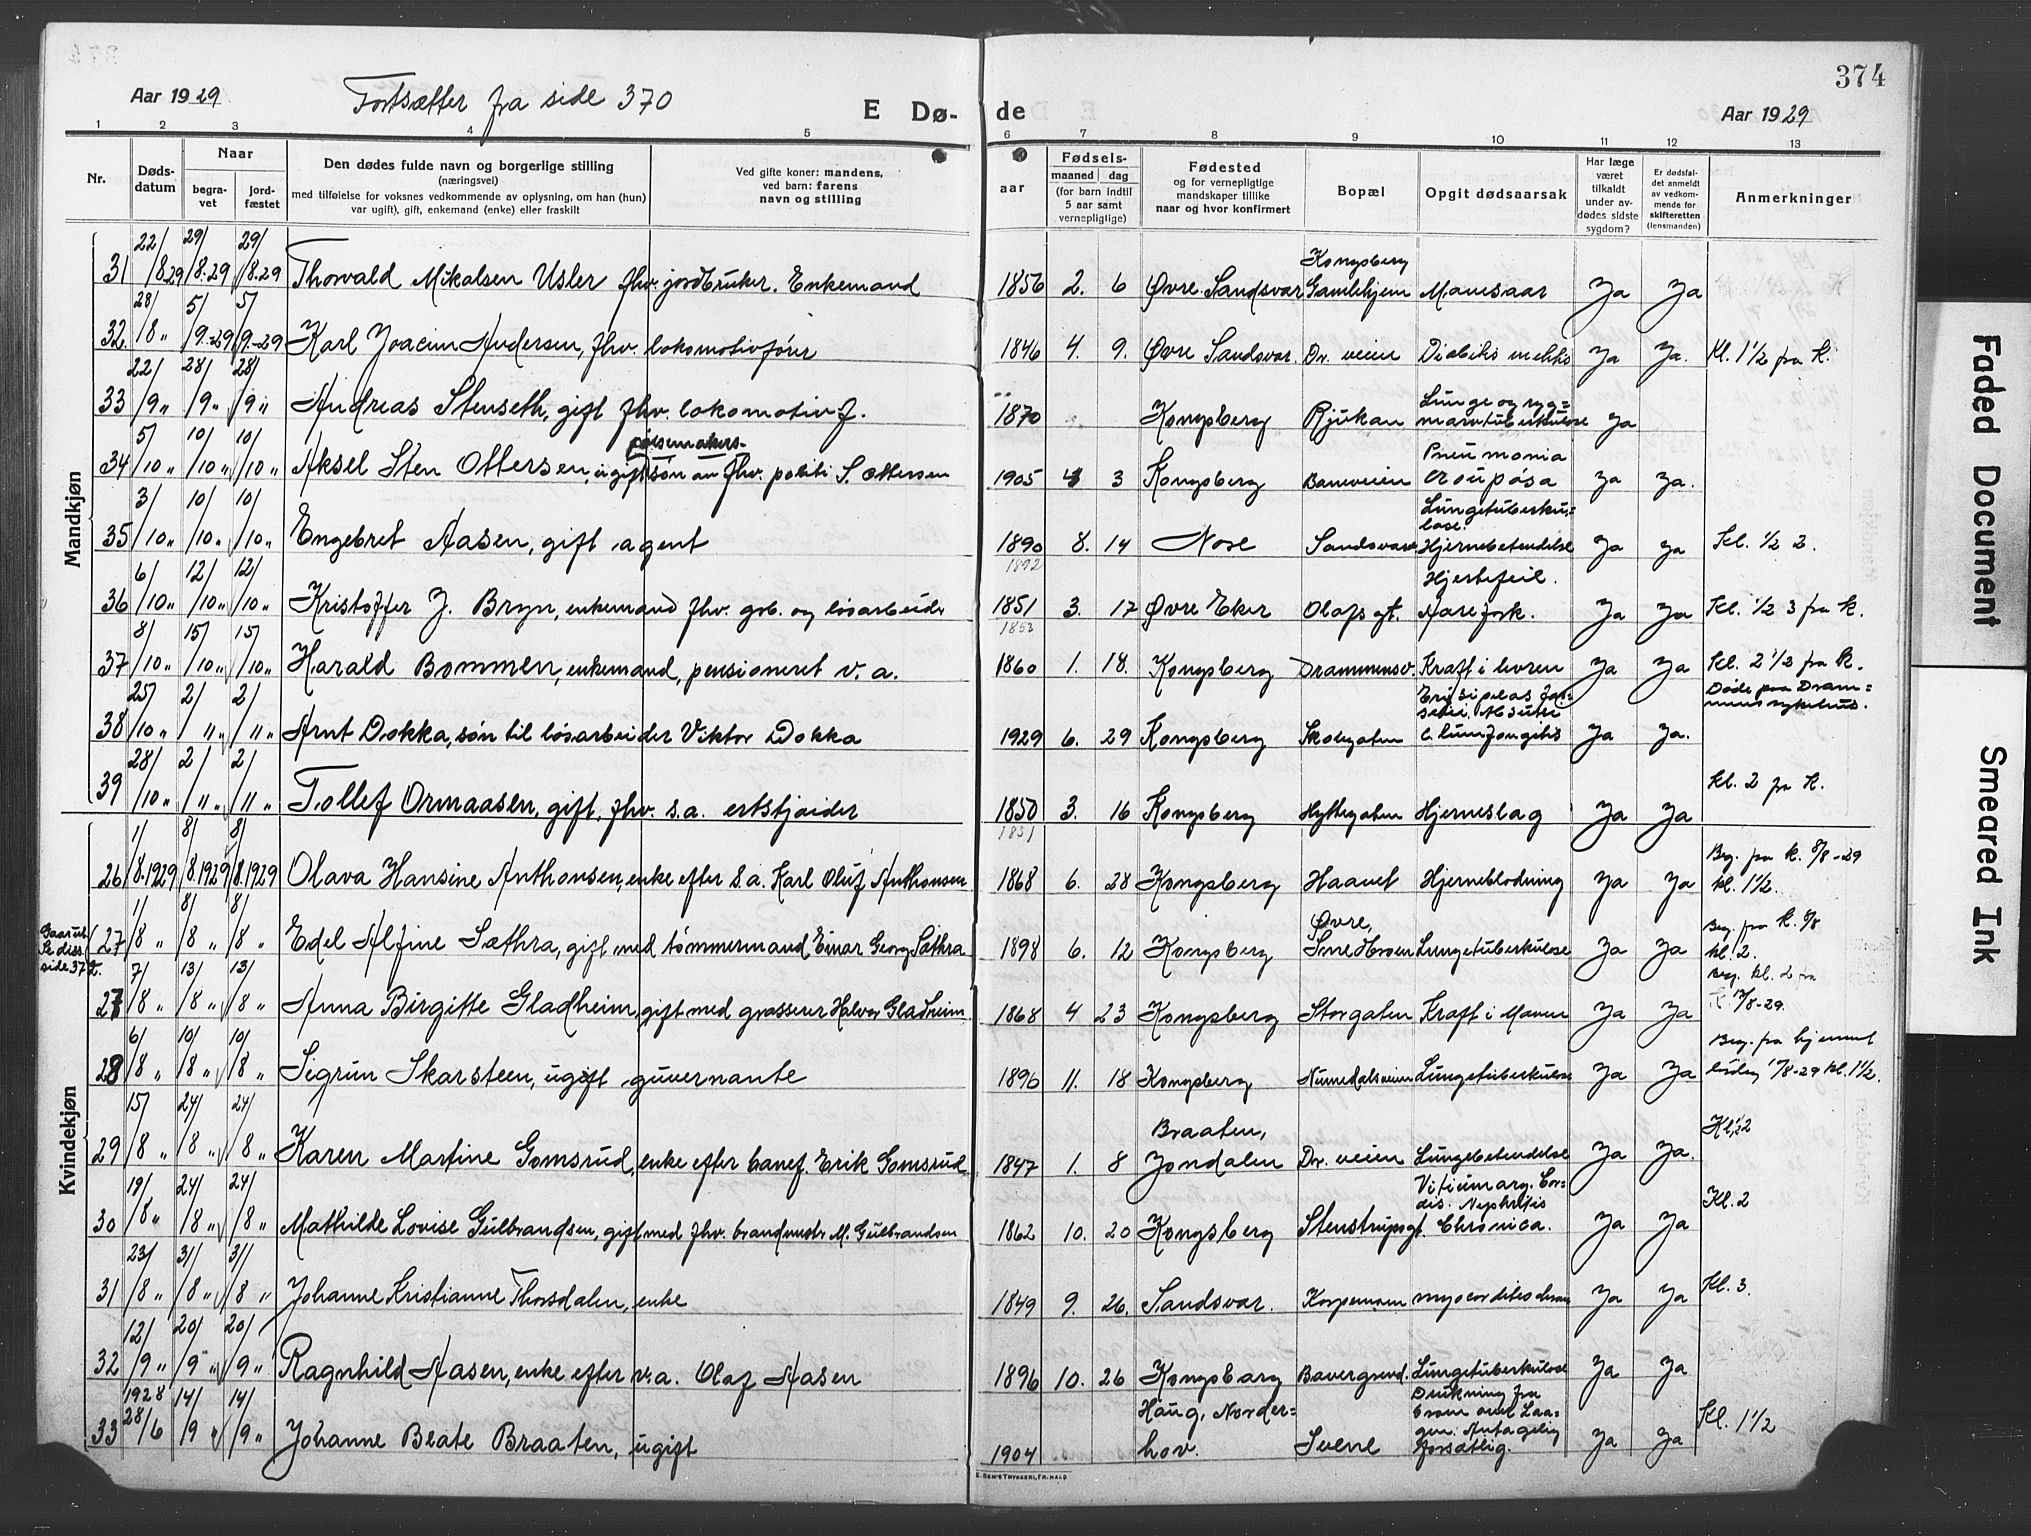 374
Aar 1929 Fortsætter fra side 370 E Dø- de Aar 1929
1 2 3 4 5 6 7 8 9 10 11 12 13
Nr. Døds-datum Naar begra-vet jord-fæstet Den dødes fulde navn og borgerlige stilling (næringsvei) med tilføielse for voksnes vedkommende av oplysning, om han (hun) var ugift), gift, enkemand (enke) eller fraskilt Ved gifte koner: mandens, ved barn: farens navn og stilling aar Fødsels- maaned dag (for barn indtil 5 aar samt vernepligtige) Fødested og for vernepligtige mandskaper tillike naar og hvor konfirmert Bopæl Opgit dødsaarsak Har læge været tilkaldt under av-dødes sidste sygdom? Er dødsfal-det anmeldt av vedkom-mende for skifteretten (lensmanden) Anmerkninger
Mandkjøn
31 22/8.29 29/8.29 29/8.29 Thorvald Mikalsen Usler fhv. jordbruker. Enkemand 1856 2. 6 Øvre Sandsvar Kongsberg Gamlehjem Mavesaar Ja Ja
32. 28/8 " 5/9.-29 5/9.-29 Karl Joacim Andersen, fhv. lokomotivfører 1846 4. 9. Øvre Sandsvar. Dr. veien Ja Ja. Kl. 1 1/2 fra K.
33 22/9 " 28/9 " 28/9 " Andreas Stenseth, gift fhv. lokomotivf. 1870 Kongsberg Rjukan Lunge og ryg= marvtuberkulose Ja
34 5/10 " 10/10 " 10/10 " Aksel Sten Ottersen, ugift pølsemakers- søn av fhv. politi S. Ottersen 1905 4 3 Kongsberg Baneveien Pneumonia croupøsa Ja Ja.
35 3/10 " 10/10 " 10/10 " Engebret Aasen, gift agent 1890 1892 8. 14 Nore Sandsvarv Lungetuberku= lose. Hjernebetendelse Ja Ja Kl. 1/2 2.
36 6/10 " 12/10 " 12/10 " Kristoffer J. Bryn, enkemand fhv. grb. og løsarbeider 1851 1853 3. 17 Øvre Eker Olafs gt. Hjertefeil. Aarefork. Ja Ja Kl. 1/2 3 fra K.
37 8/10 " 15/10 " 15/10 " Harald Bommen, enkemand, pensioneret v. a. 1860 1. 18. Kongsberg Drammensv. Kræft i leveren Ja Ja Kl. 2 1/2 fra K.
38 25/10 " 2/11 " 2/11 " Arnt Dokka, søn til løsarbeider Viktor Dokka 1929 6. 29 Kongsberg Skolegaten Ja Ja. Døde paa Dram= mens sykehus.
39 28/10 " 2/11 " 2/11 " Tollef Ormaasen, gift, fhv. s.a. ertskjører 1850 1851 3. 16 Kongsberg Hyttegaten Hjerneslag Ja Ja kl. 2 fra K.
Kvindekjøn
26 1/8.1929 8/8.1929 8/8.1929 Olava Hansine Anthonsen, enke efter s.a. Karl Oluf Anthonsen 1868 6. 28 Kongsberg Haavet Hjerneblødning Ja Ja Beg. fra K. 8/8-29 kl. 1 1/2.
side 372. 27 1/8 " 8/8 " 8/8 " Edel Alfine Sæthra, gift med tømmermand Einar Georg Sæthra 1898 6. 12 Kongsberg Øvre, Smedbroen Lungetuberkulose Ja Ja Beg. fra K. 8/8 kl. 2.
27 7/8 " 13/8 " 13/8 " Anna Birgitte Gladheim, gift med grosserer Halvor Gladheim 1868 4 23 Kongsberg Storgaten Kræft i Maven Ja Ja Beg. kl. 2 fra K 13/8-29.
28 6/8 " 10/8 " 10/8 " Sigrun Skarsteen, ugift guvernante 1896 11. 18 Kongsberg Numedalsveien Lungetuberkulose Ja Ja Beg. fra hjemmet lørdag 10/8-29 kl. 1 1/2.
29 15/8 " 24/8 " 24/8 " Karen Martine Gomsrud, enke efter banef. Erik Gomsrud 1847 1. 8 Braaten, Jondalen Dr. veien Lungebetendelse Ja Ja.
30 19/8 " 24/8 " 24/8 " Mathilde Lovise Gulbrandsen, gift med fhv. brandmstr. M. Gulbrandsen 1862 10. 20 Kongsberg Stenstrupsgt. Vitium org. Cor- dis. Nephritis Chronica. Ja Ja Kl. 2
31 23/8 " 31/8 " 31/8 " Johanne Kristianne Thorsdalen, enke 1849 9. 26. Sandsvar. Korpemoen Ja Ja Kl. 3.
32 12/9 " 20/9 " 20/9 " Ragnhild Aasen, enke efter v.a. Olaf Aasen 1896 10. 26 Kongsberg Bævergrend. Lungetuberkulose Ja Ja
33 1928 28/6 14/9 " 14/9 " Johanne Beate Braaten, ugift 1904 Haug, Norder= hov. Svene Drukning fra broen over Laa= gen. Antagelig forsætlig. Ja Ja Kl. 1 1/2
E. SEM'S TRYKKERI, FR.HALD
Faded Document
Smeared Ink